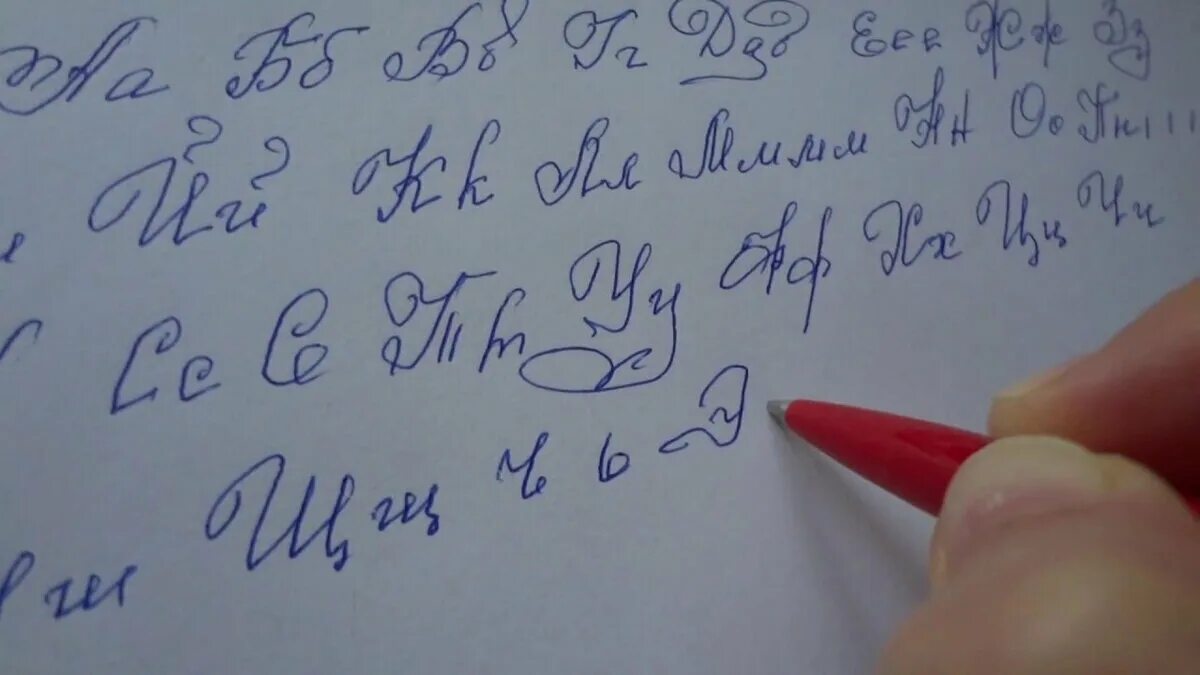 Аа Бб Вв Гг Ддд Еее Жж Зз
Йй Кк Лл Мммм Нн Оо Пп
Сс С Тт Уу Фф Хх Цц Чч
ш Щщ ъ ь Э